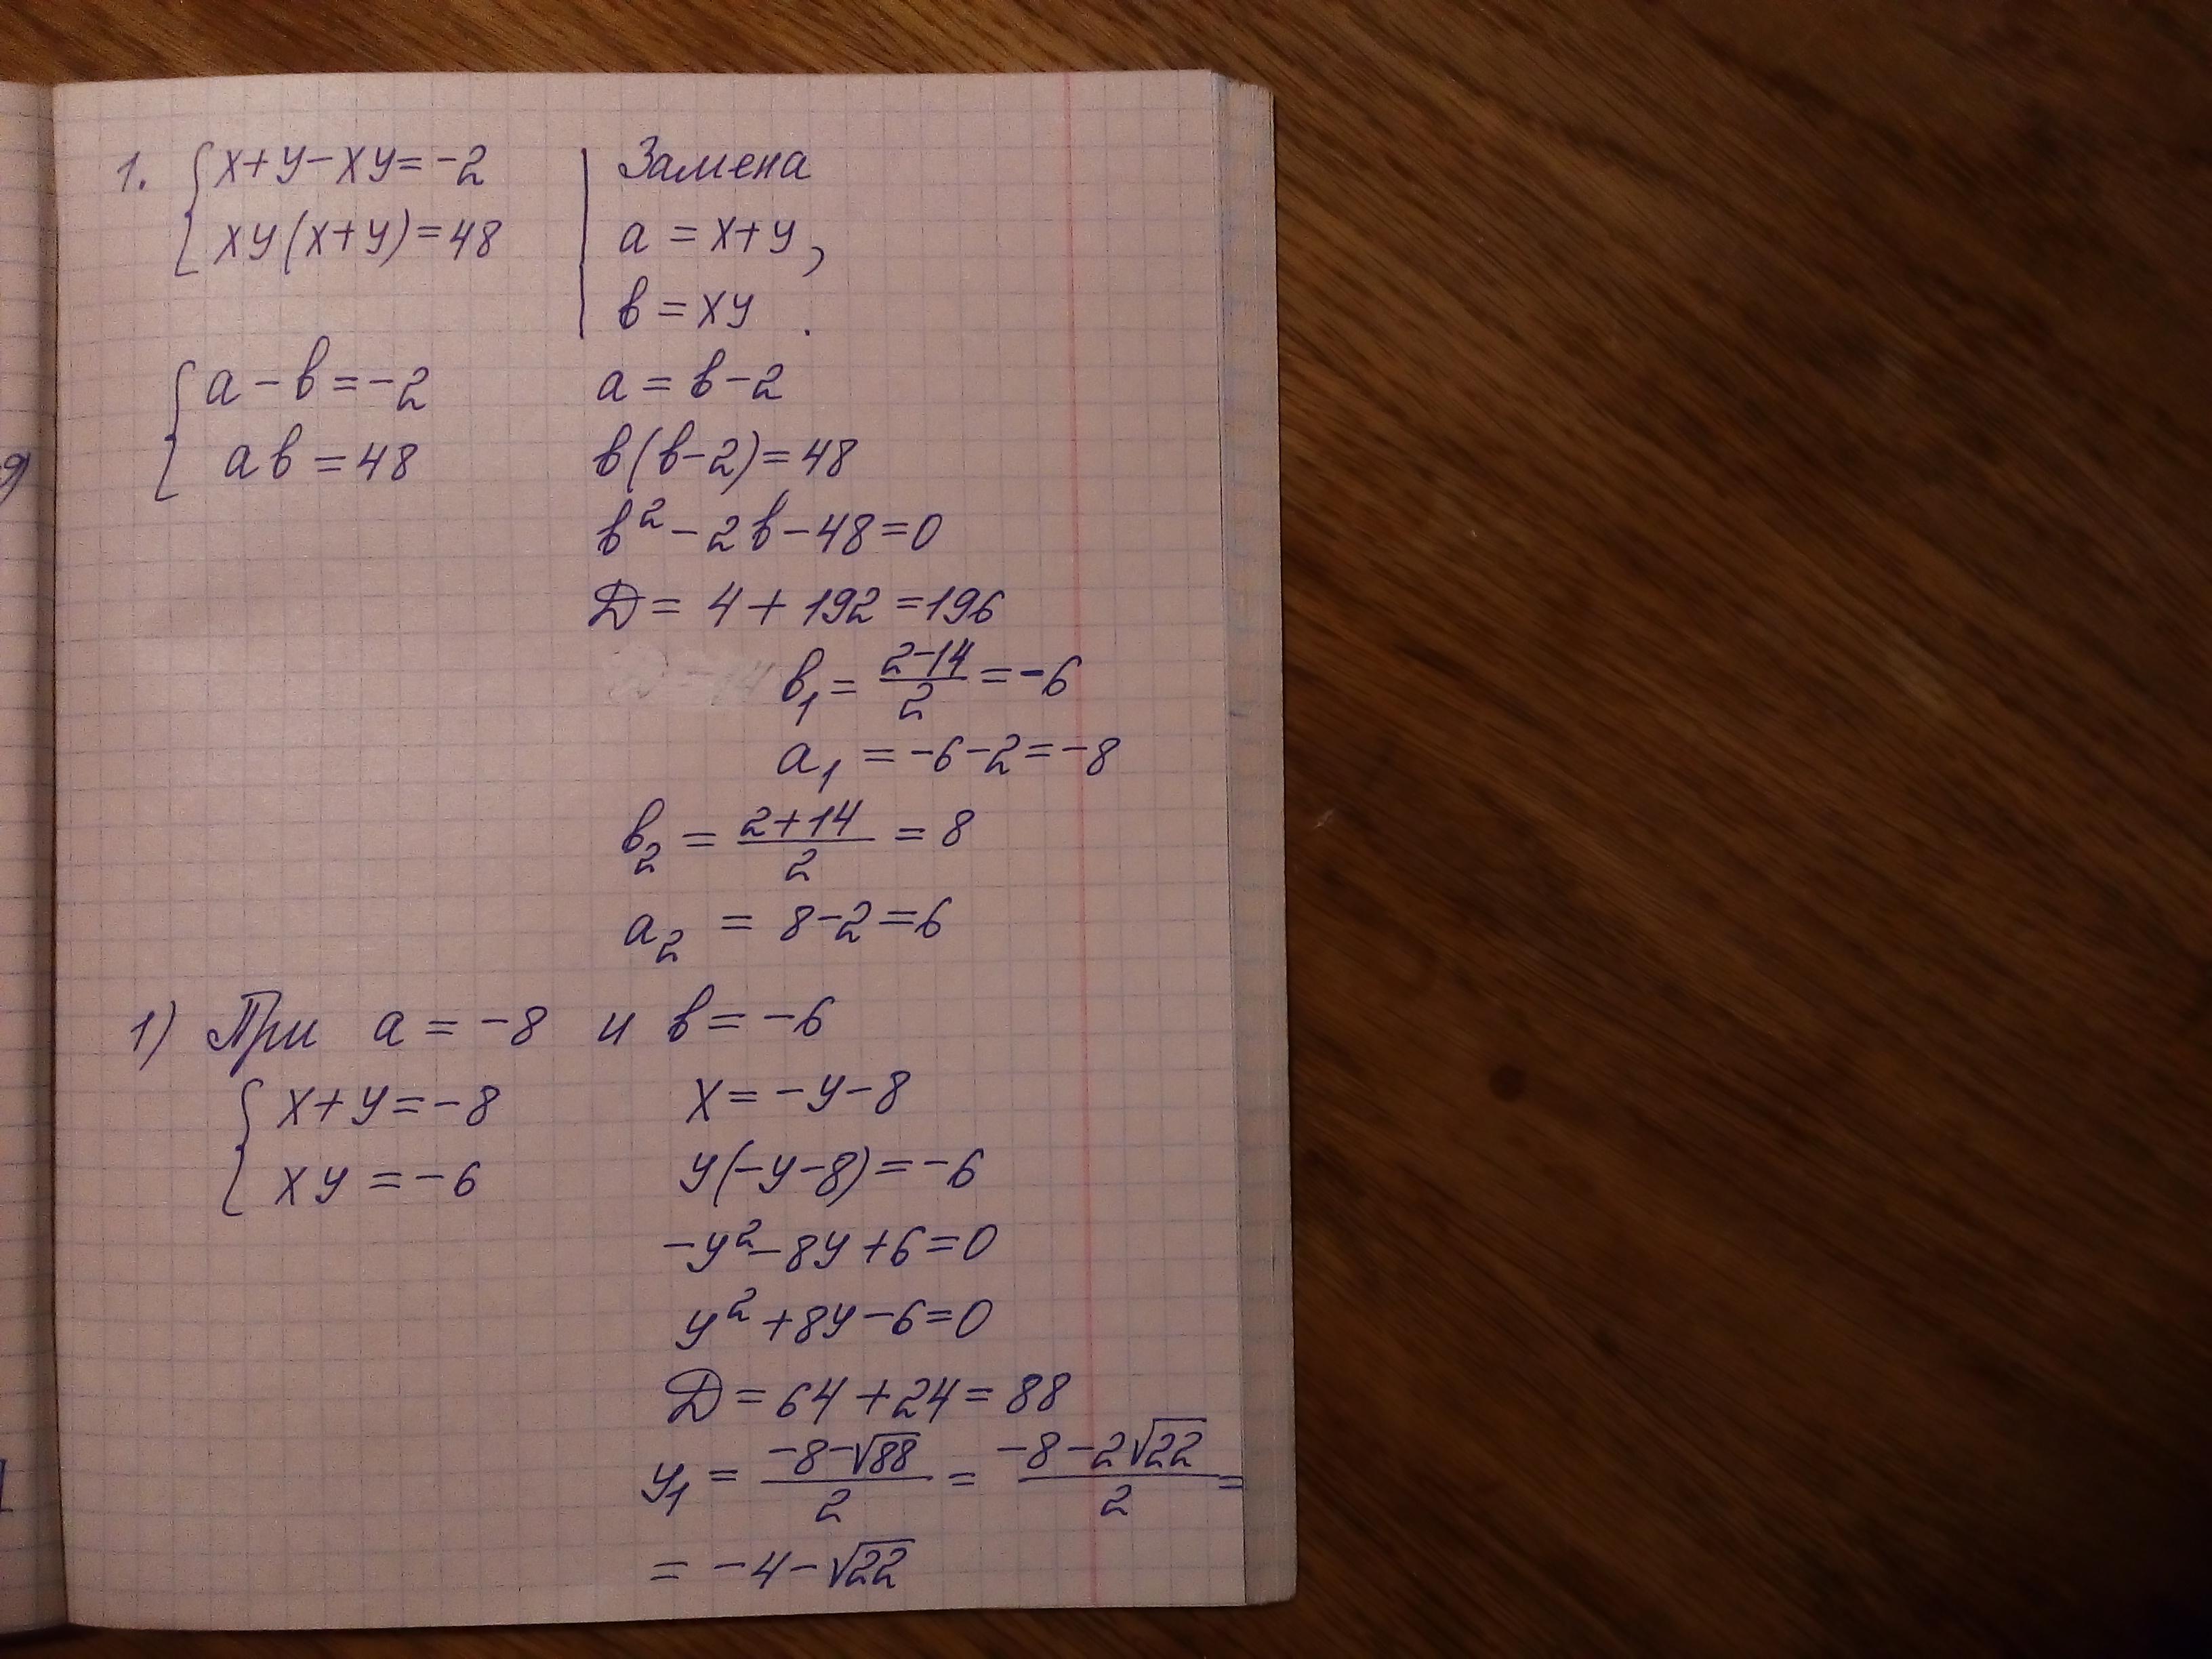 1. { x+y−xy=−2 | Замена
xy(x+y)=48 | a = x+y,
в = xy.
{ a−в=−2 a = в−2
aв=48 в(в−2)=48
в²−2в−48=0
Д = 4+192=196
в₁= (2−14)/2 =−6
a₁ =−6−2=−8
в₂ = (2+14)/2 = 8
a₂ = 8−2=6
1) При a = −8 и в = −6
{ x+y=−8 x=−y−8
xy=−6 y(−y−8)=−6
−y²−8y+6=0
y²+8y−6=0
Д=64+24=88
y₁ = (−8−√88)/2 = (−8−2√22)/2 =
= −4−√22